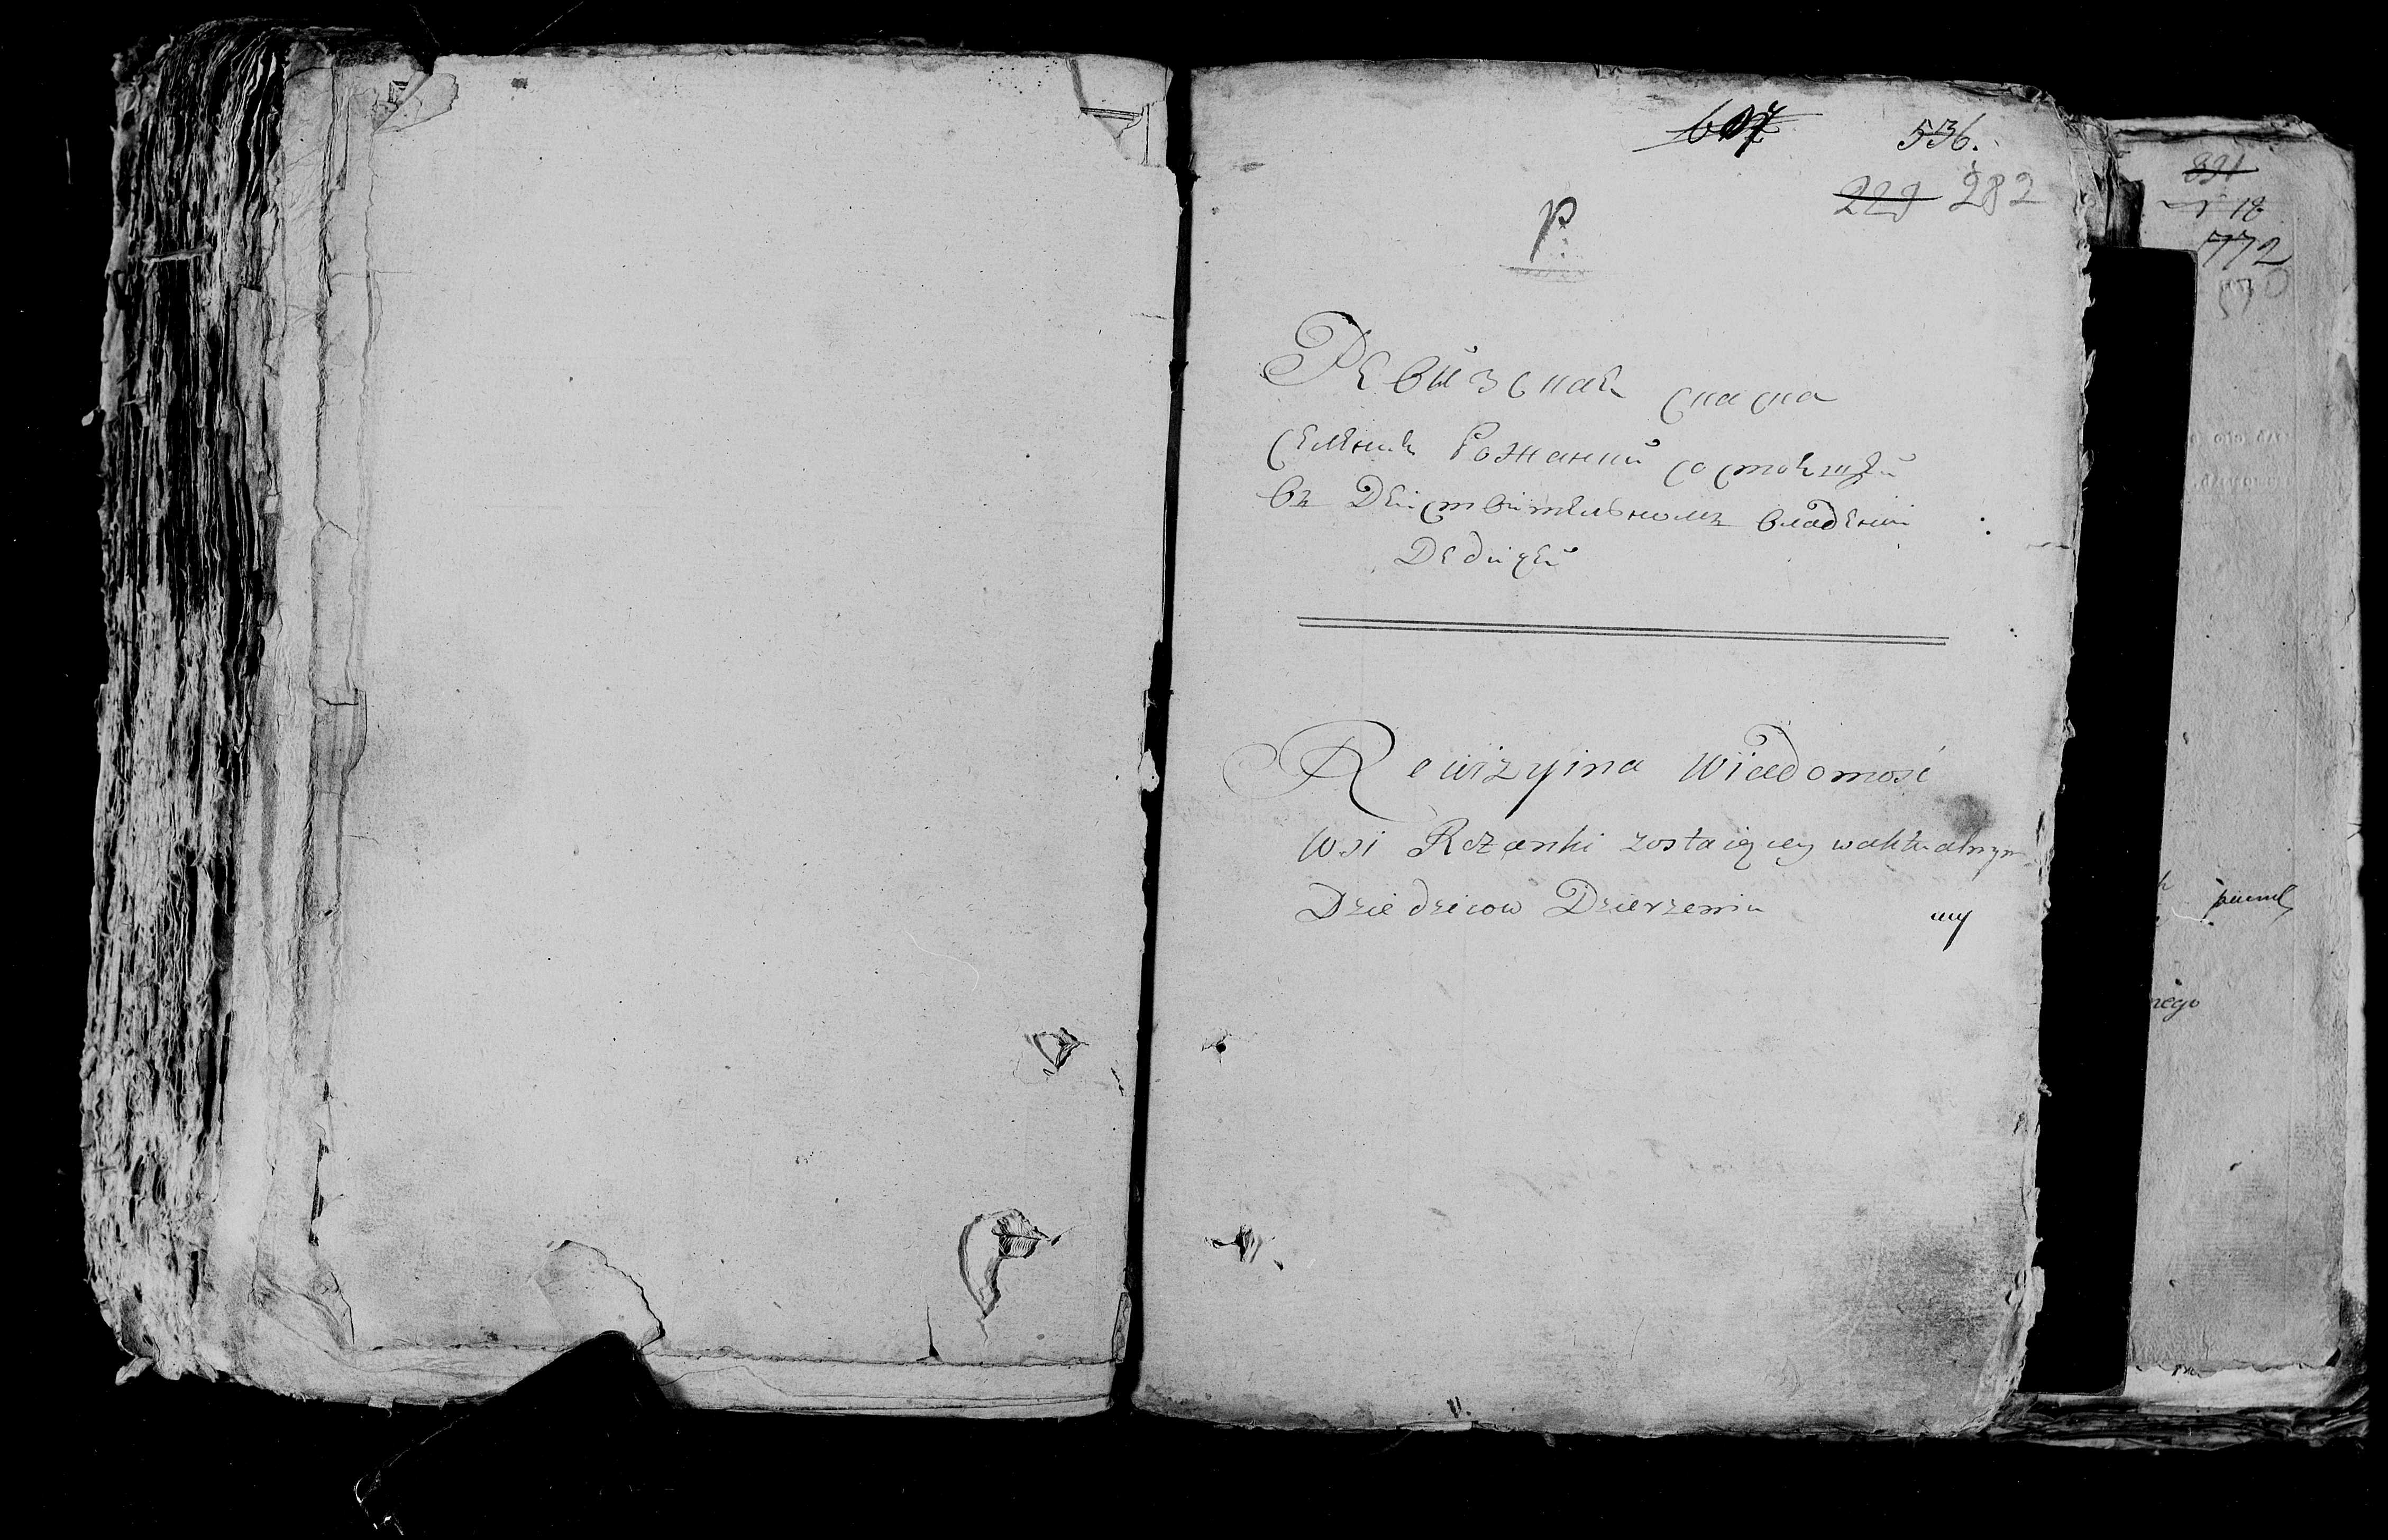 607 536.
229 282
Р.
Ревизская скаска
селения Рожанки состоящей
въ Действительномъ владении
Дедичей
Rewizyina Wiadomość
Wsi Rożanki zostaiącey w aktualnym
Dziedzicow Dzierzeniu
831
18
772
570
nego